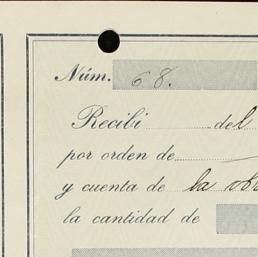 Núm. 68.
Recibí del
por orden de
y cuenta de la obr
la cantidad de